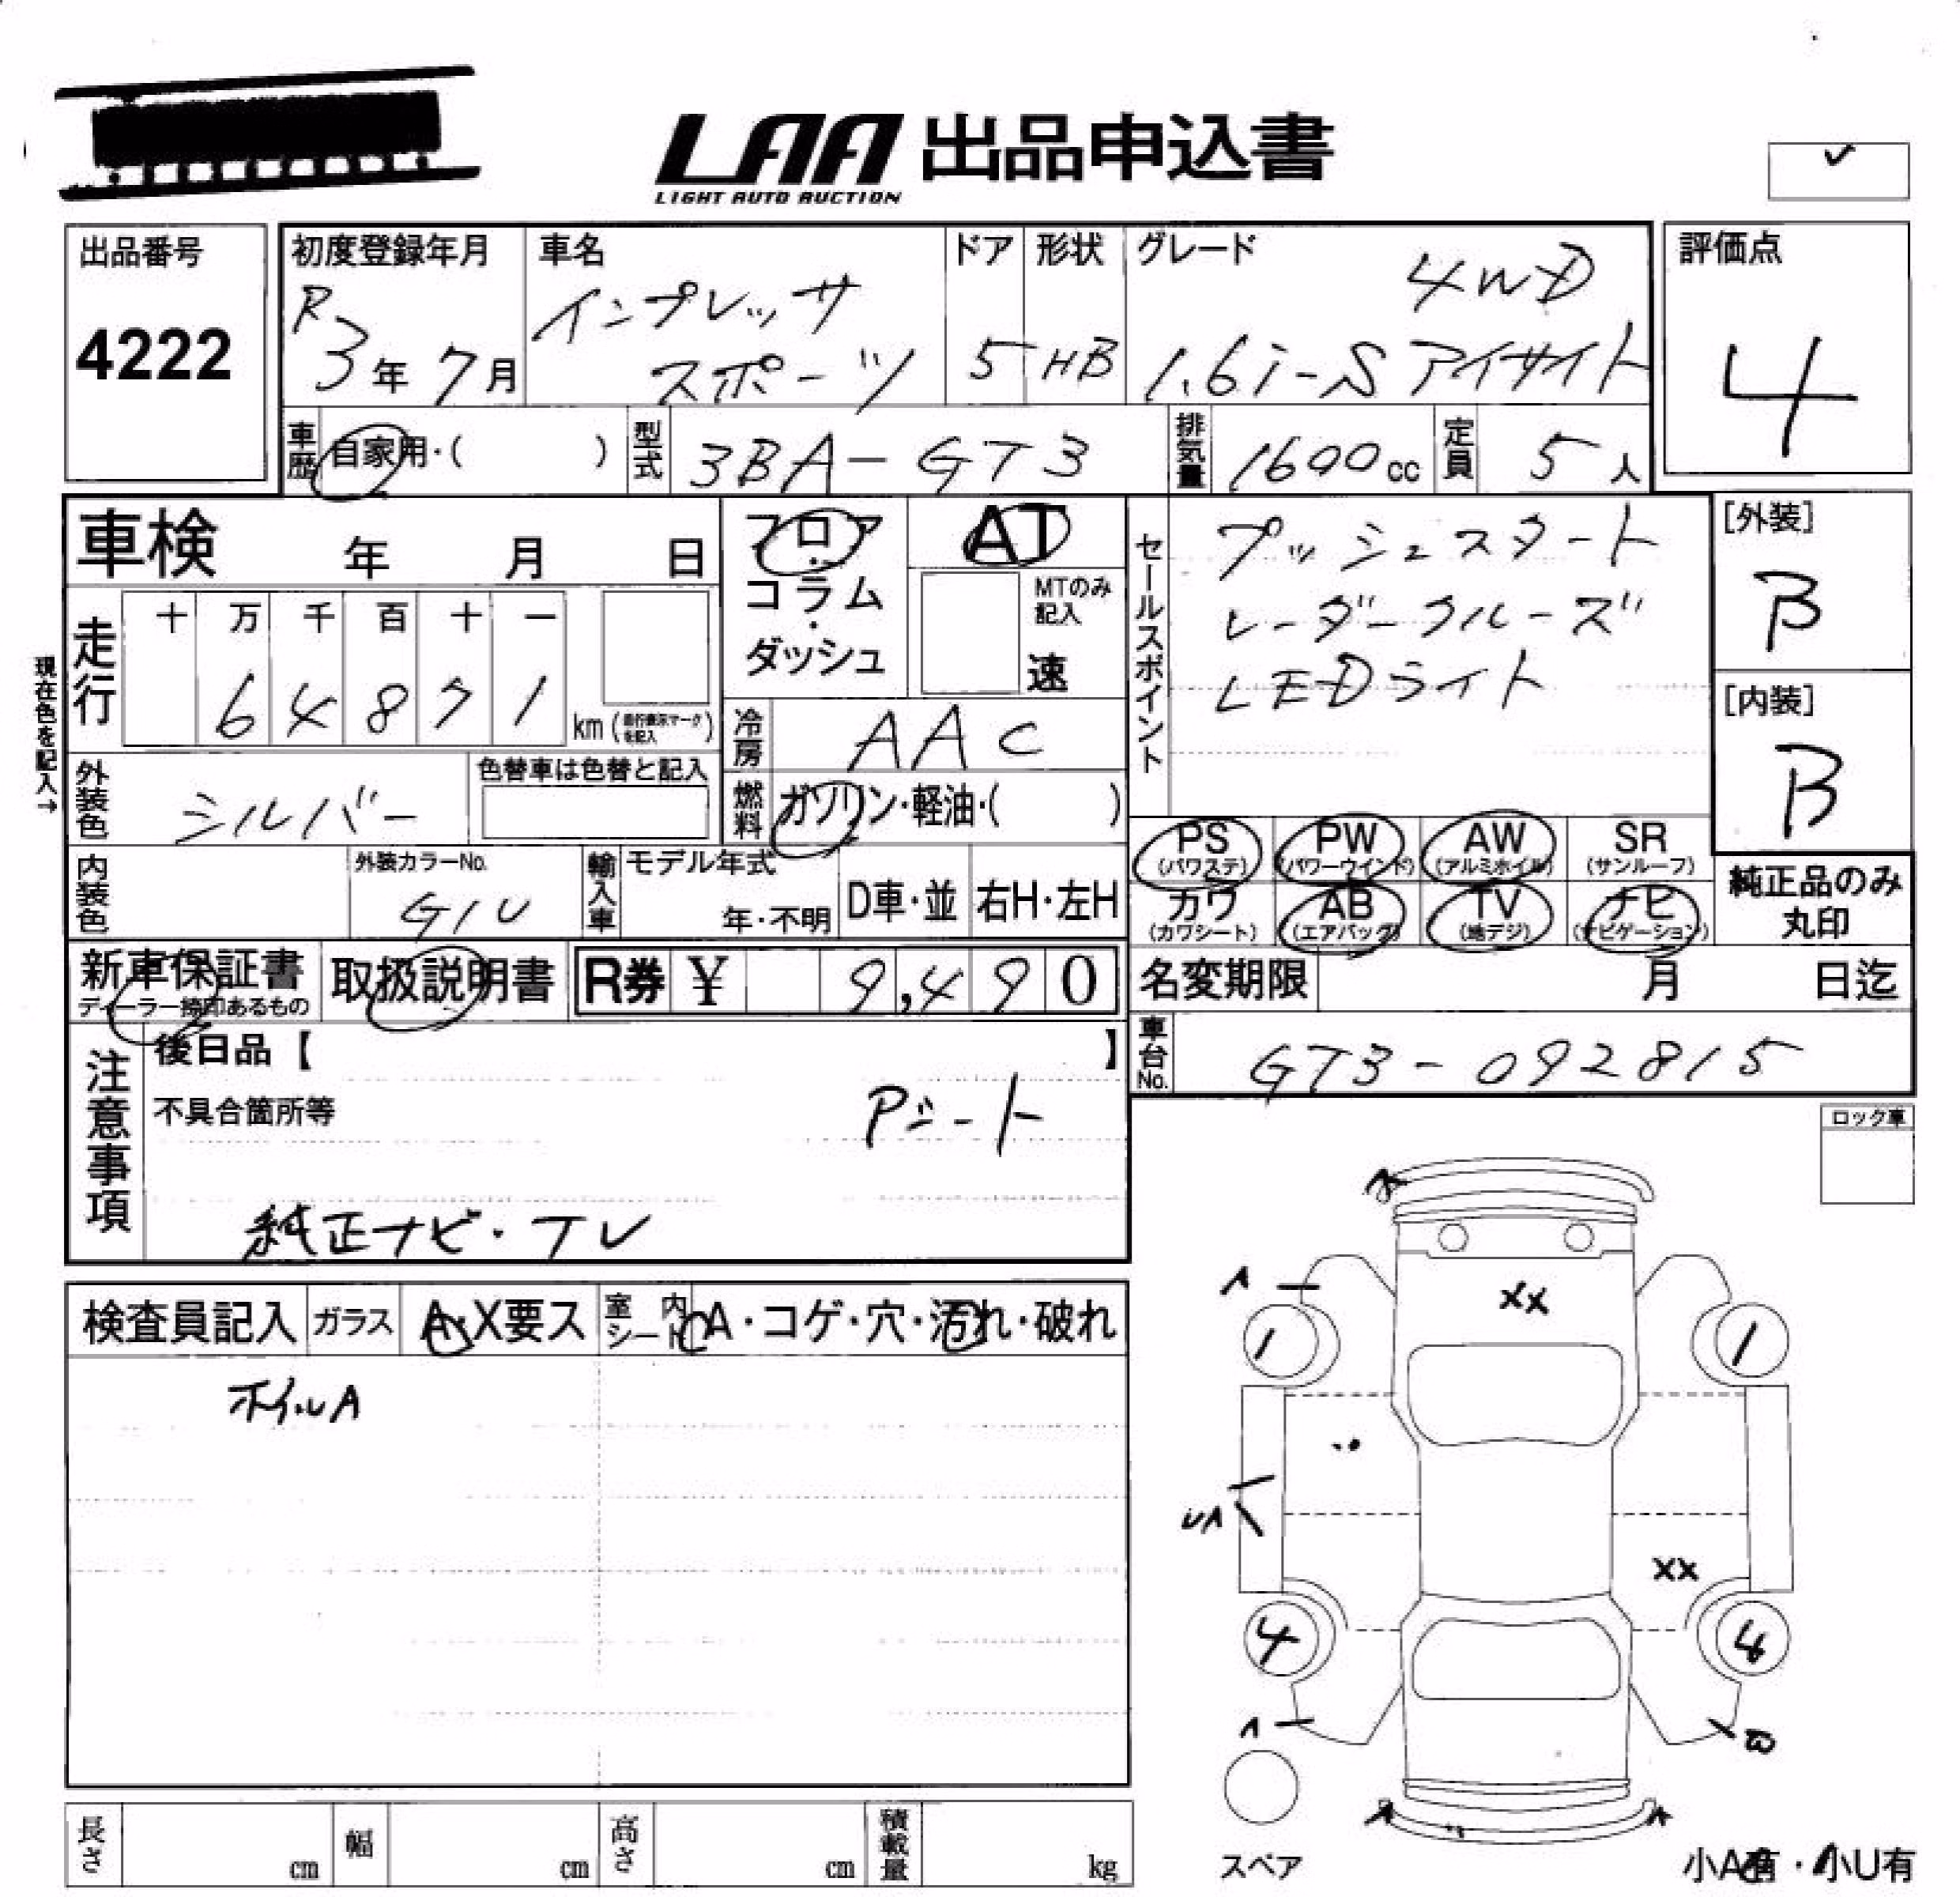 LAA 出品申込書
LIGHT AUTO AUCTION
出品番号
4222
初度登録年月
R3年7月
車名
インプレッサ
スポーツ
ドア
5
形状
HB
グレード
4WD
1.6i-S アイサイト
評価点
4
車歴 自家用・( )
型式 3BA-GT3
排気量 1600cc
定員 5人
車検 年 月 日
フロア・
コラム・
ダッシュ
AT
MTのみ記入
速
セールスポイント
プッシュスタート
レーダークルーズ
LEDライト
[外装]
B
[内装]
B
現在色を記入→
走行
十 万 千 百 十 一
6 4 8 7 1 km (走行表示マークを記入)
冷房 AAC
外装色 シルバー
色替車は色替と記入
燃料 ガソリン・軽油・( )
PS (パワステ) PW (パワーウインド) AW (アルミホイル) SR (サンルーフ)
カワ (カワシート) AB (エアバック) TV (地デジ) ナビ (ナビゲーション)
純正品のみ丸印
内装色
外装カラーNo.
G1U
輸入車
モデル年式
年・不明
D車・並
右H・左H
新車保証書
ディーラー捺印あるもの
取扱説明書
R券 ¥ 9,490
名変期限 月 日迄
車台No. GT3-092815
注意事項
後日品【 】
不具合箇所等
Pシート
純正ナビ・TV
ロック車
検査員記入 ガラス A・X要ス 室内シート A・コゲ・穴・汚れ・破れ
ホイルA
A
A
XX
1
1
UA
XX
4
4
A
A
A
スペア
小A有・小U有
長さ cm 幅 cm 高さ cm 積載量 kg